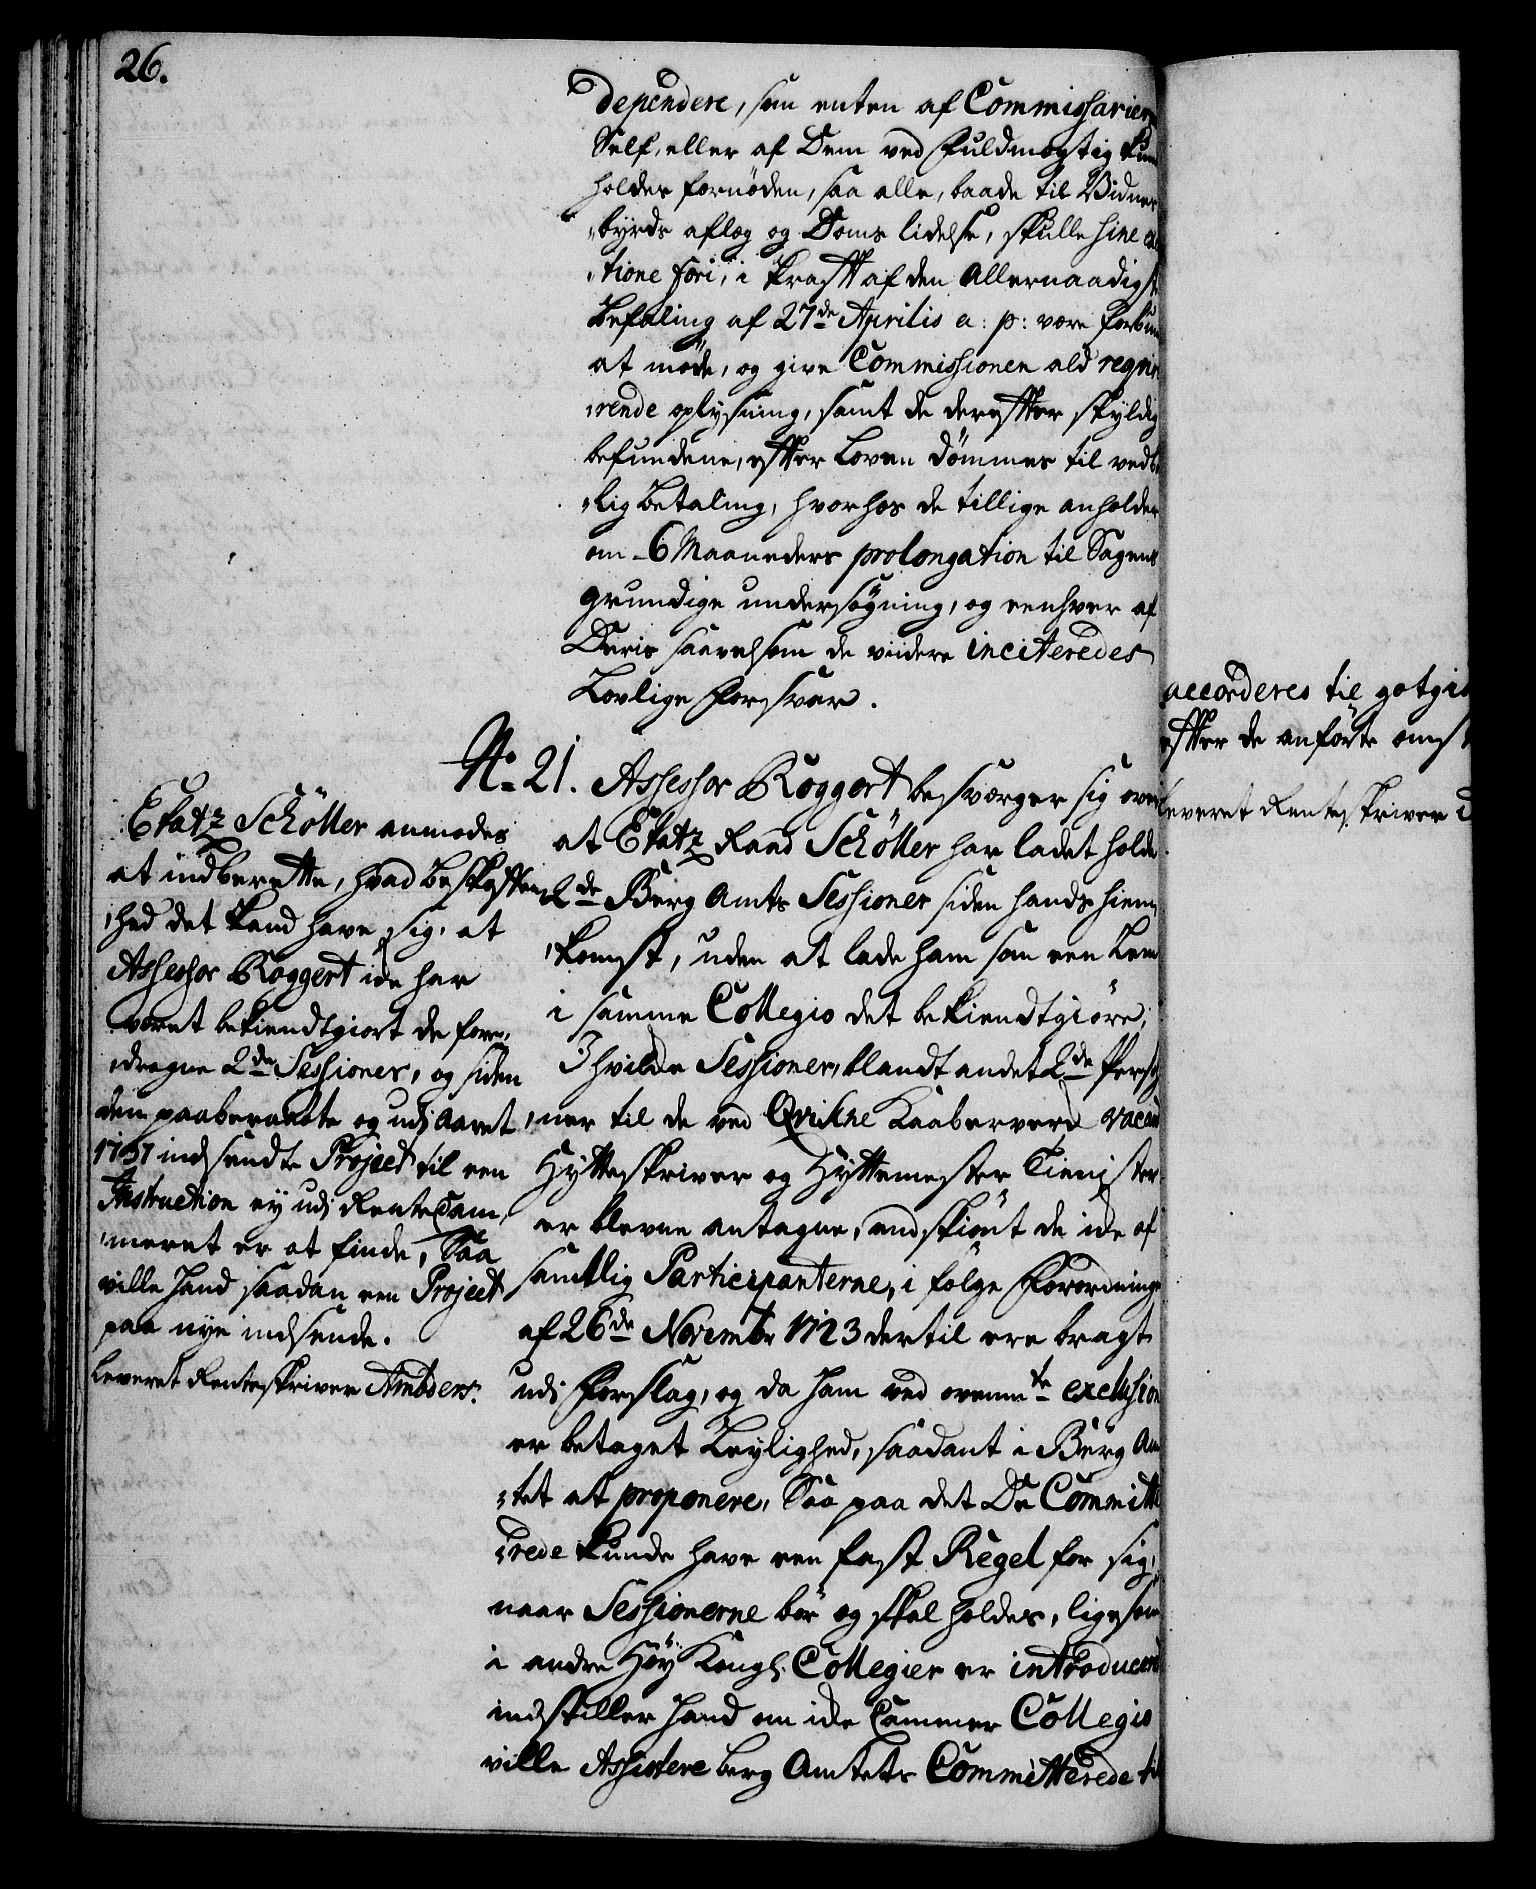 26.
dependere, som enten af Commissarier
Self, eller af Dem ved fuldmægtig kun
holdes fornöden, saa alle, baade til Vidnes
byrds aflæg og Doms lidelse, skulle sine
tione fori, i kraft af den Allernaadigste
befaling af 27de Aprilis a: p: være forbun
at möde, og give Commissionen ald requi
rende oplysning, samt de derefter skyldig
befundene, efter Loven dömmes til vedb
lig betaling, hvorhos de tillige anholder
om 6 Maaneders prolongation til Sagens
grundige undersögning, og eenhver af
Deris saavelsom de videre inciteredes
Lovlige forsvar.
No 21. Assessor Roggert besværger sig over
at Etatz Raad Schöller har ladet holde
2de Berg Amts Sessioner siden hands hiem
komst, uden at lade ham som een Lem
i samme Collegio det bekiendtgiöre;
I hvilke Sessioner, blandt andet 2de Perso
ner til de ved Qvikne Kaaberverk vacan
Hytteskriver og Hyttemester Tienister
er blevne antagne, endskiönt de icke af
samtlig Participanterne, i fölge Forordning
af 26de Novembr 1723 dertil ere bragt
udi Forslag, og da ham ved ovenmte exclusion
er betaget Leylighed, saadant i Berg Am
tet at proponere, Saa paa det De Committe
rede kunde have een fast Regel for sig,
naar Sessionerne bör og skal holdes, ligesom
i andre Höy Kongl. Collegier er introduceret
indstiller hand om icke Cammer Collegio
ville Assistere berg Amtets Committerede til
Etatz Schöller anmodes
at indberette, hvad beskaffen
hed det kand have sig, at
Assessor Roggert icke har
været bekiendtgiort de fore
dragne 2de Sessioner, og siden
den paaberaabte og udi Aaret
1737 indsendte Project til een
Instruction ey udi RenteCam
meret er at finde, Saa
ville hand saadan een Project
paa nye indsende.
Leveret Renteskriver Amböers.
accorderes til gotgiö
efter de anförte omst
Leveret Renteskriver